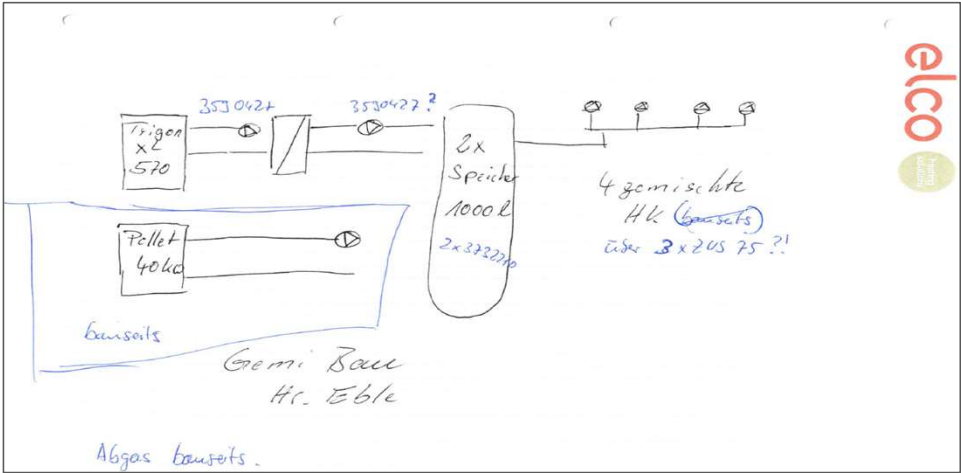 elco
heating solutions
3590427
3590427?
Trigon
XL
570
2x
Speicher
1000 l
2x3732210
4 gemischte
HK (bauseits)
über 3 x ZUS 75 ?!
Pellet
40 kW
bauseits
Gemi Bau
Hr. Eble
Abgas bauseits.